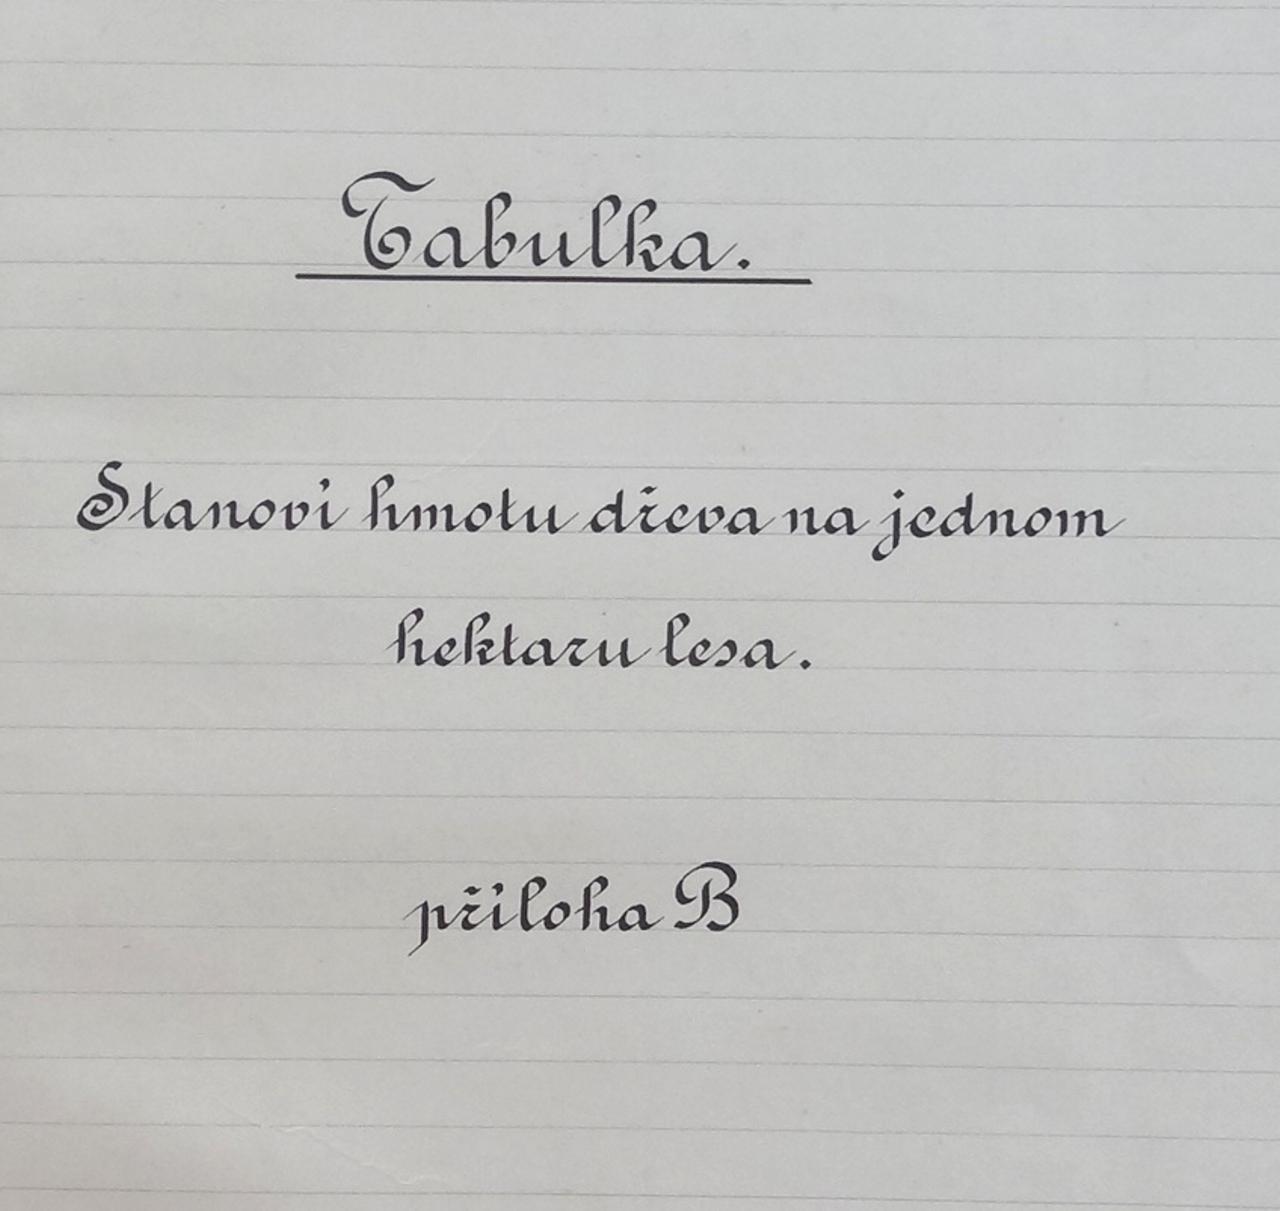 Tabulka.
Stanoví hmotu dřeva na jednom
hektaru lesa.
příloha B